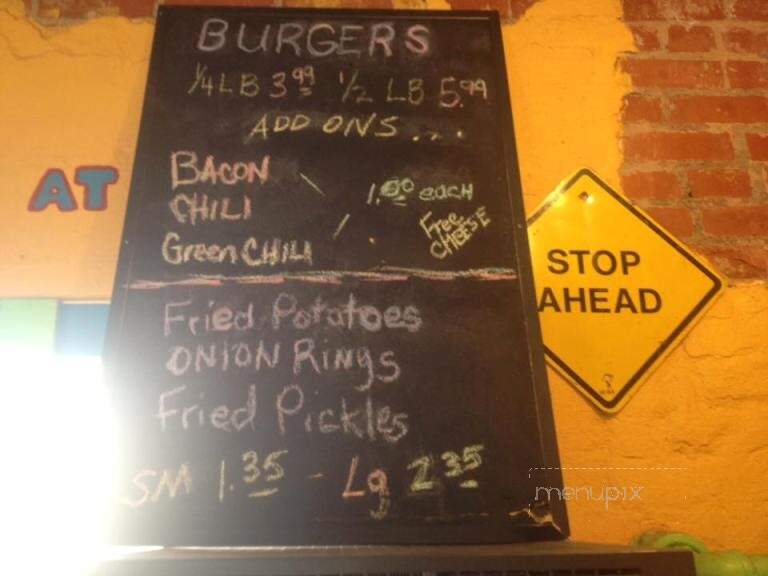 BURGERS
1/4 LB 3.99 1/2 LB 5.99
ADD ONS...
BACON
CHILI
Green CHILI
1.00 each
Free
CHEESE
Fried Potatoes
ONION Rings
Fried Pickles
SM 1.35 - Lg 2.35
AT
STOP
AHEAD
menupix